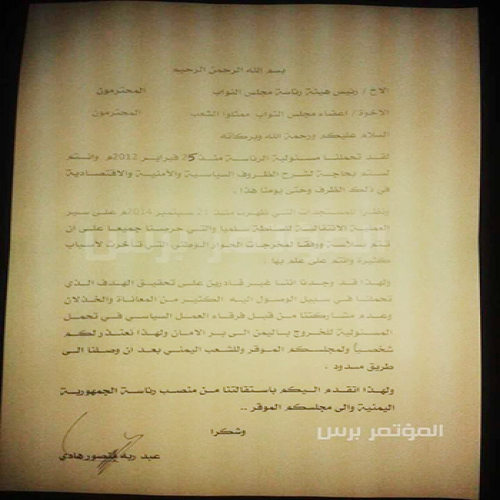 بسم الله الرحمن الرحيم
الاخ / رئيس هيئة رئاسة مجلس النواب المحترمون
الأخوة / اعضاء مجلس النواب ممثلوا الشعب المحترمون
السلام عليكم ورحمة الله وبركاته
لقد تحملنا مسئولية الرئاسة منذ 25 فبراير 2012م وانتم
لستم بحاجة لشرح الظروف السياسية والأمنية والاقتصادية
في ذلك الظرف وحتى يومنا هذا .
ونظرا للمستجدات التي ظهرت منذ 21 سبتمبر 2014م على سير
العملية الانتقالية للسلطة سلميا والتي حرصنا جميعا على ان
تتم بسلاسة ووفقا لمخرجات الحوار الوطني التي تأخرت لأسباب
كثيرة وانتم على علم بها .
ولهذا قد وجدنا اننا غير قادرين على تحقيق الهدف الذي
تحملنا في سبيل الوصول اليه الكثير من المعاناة والخذلان
وعدم مشاركتنا من قبل فرقاء العمل السياسي في تحمل
المسئولية للخروج باليمن الى بر الامان ولهذا نعتذر لكم
شخصياً ولمجلسكم الموقر وللشعب اليمني بعد ان وصلنا الى
طريق مسدود .
ولهذا اتقدم اليكم باستقالتنا من منصب رئاسة الجمهورية
اليمنية والى مجلسكم الموقر ..
وشكرا
المؤتمر برس
عبد ربه منصور هادي